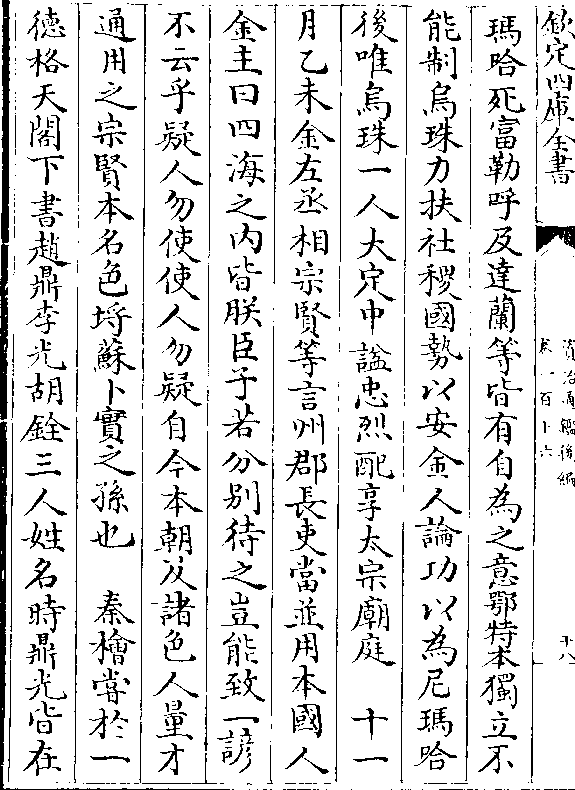 欽定四庫全書
資治通鑑後編
卷一百十六
十八
瑪哈死富勒呼及達蘭等皆有自為之意鄂特本獨立不
能制烏珠力扶社稷國勢以安金人論功以為尼瑪哈
後唯烏珠一人大定中諡忠烈配享太宗廟庭 十一
月乙未金左丞相宗賢等言州郡長吏當並用本國人
金主曰四海之內皆朕臣子若分別待之豈能致一諺
不云乎疑人勿使使人勿疑自今本朝及諸色人量才
通用之宗賢本名色埒蘇卜實之孫也 秦檜嘗於一
德格天閣下書趙鼎李光胡銓三人姓名時鼎光皆在